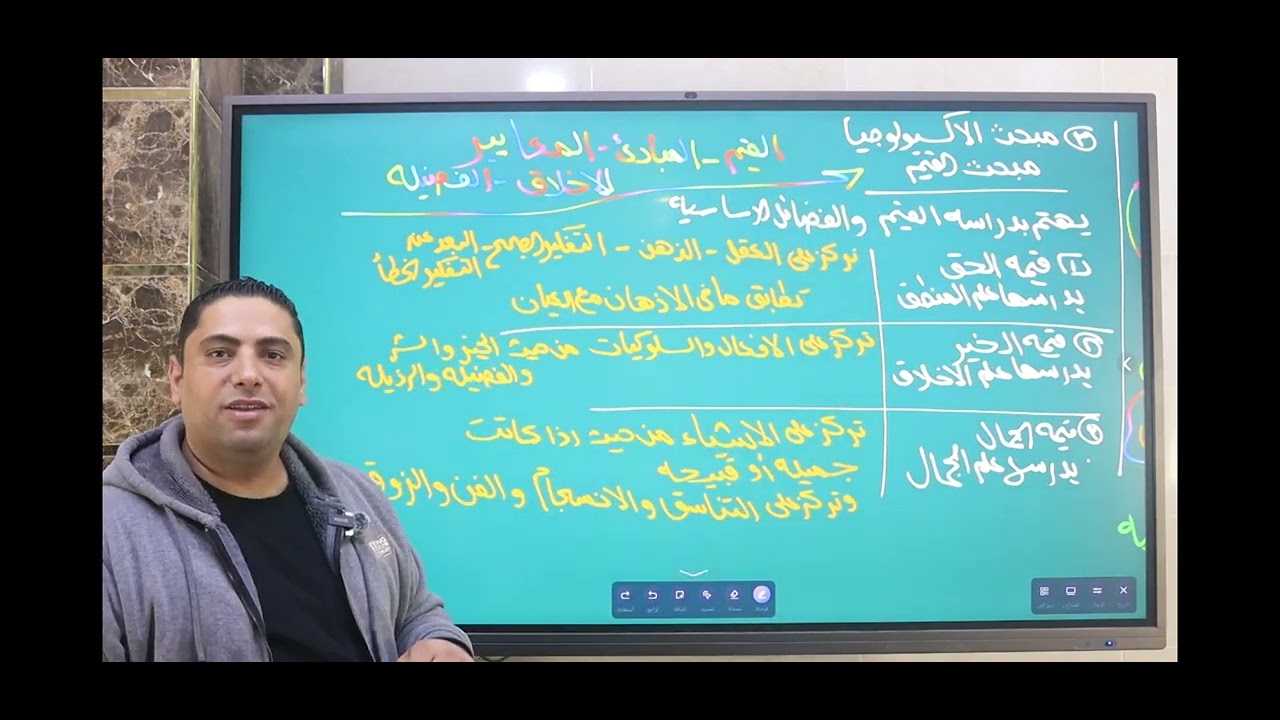 ٣ مبحث الاكسيولوجيا
مبحث القيم
القيم - المبادئ - المعايير
الاخلاق - الفضيله
يهتم بدراسه القيم والفضائل الاساسيه
١ قيمه الحق
يدرسها علم المنطق
تركز على العقل - الذهن - التفكير الصحيح - البعد عن
التفكير الخطأ
تطابق ما فى الاذهان مع العيان
٢ قيمه الخير
يدرسها علم الاخلاق
تركز على الافعال والسلوكيات من حيث الخير والشر
والفضيله والرذيله
٣ قيمه الجمال
يدرسها علم الجمال
تركز على الاشياء من حيث اذا كانت
جميله أو قبيحه
وتركز على التناسق والانسجام والفن والذوق